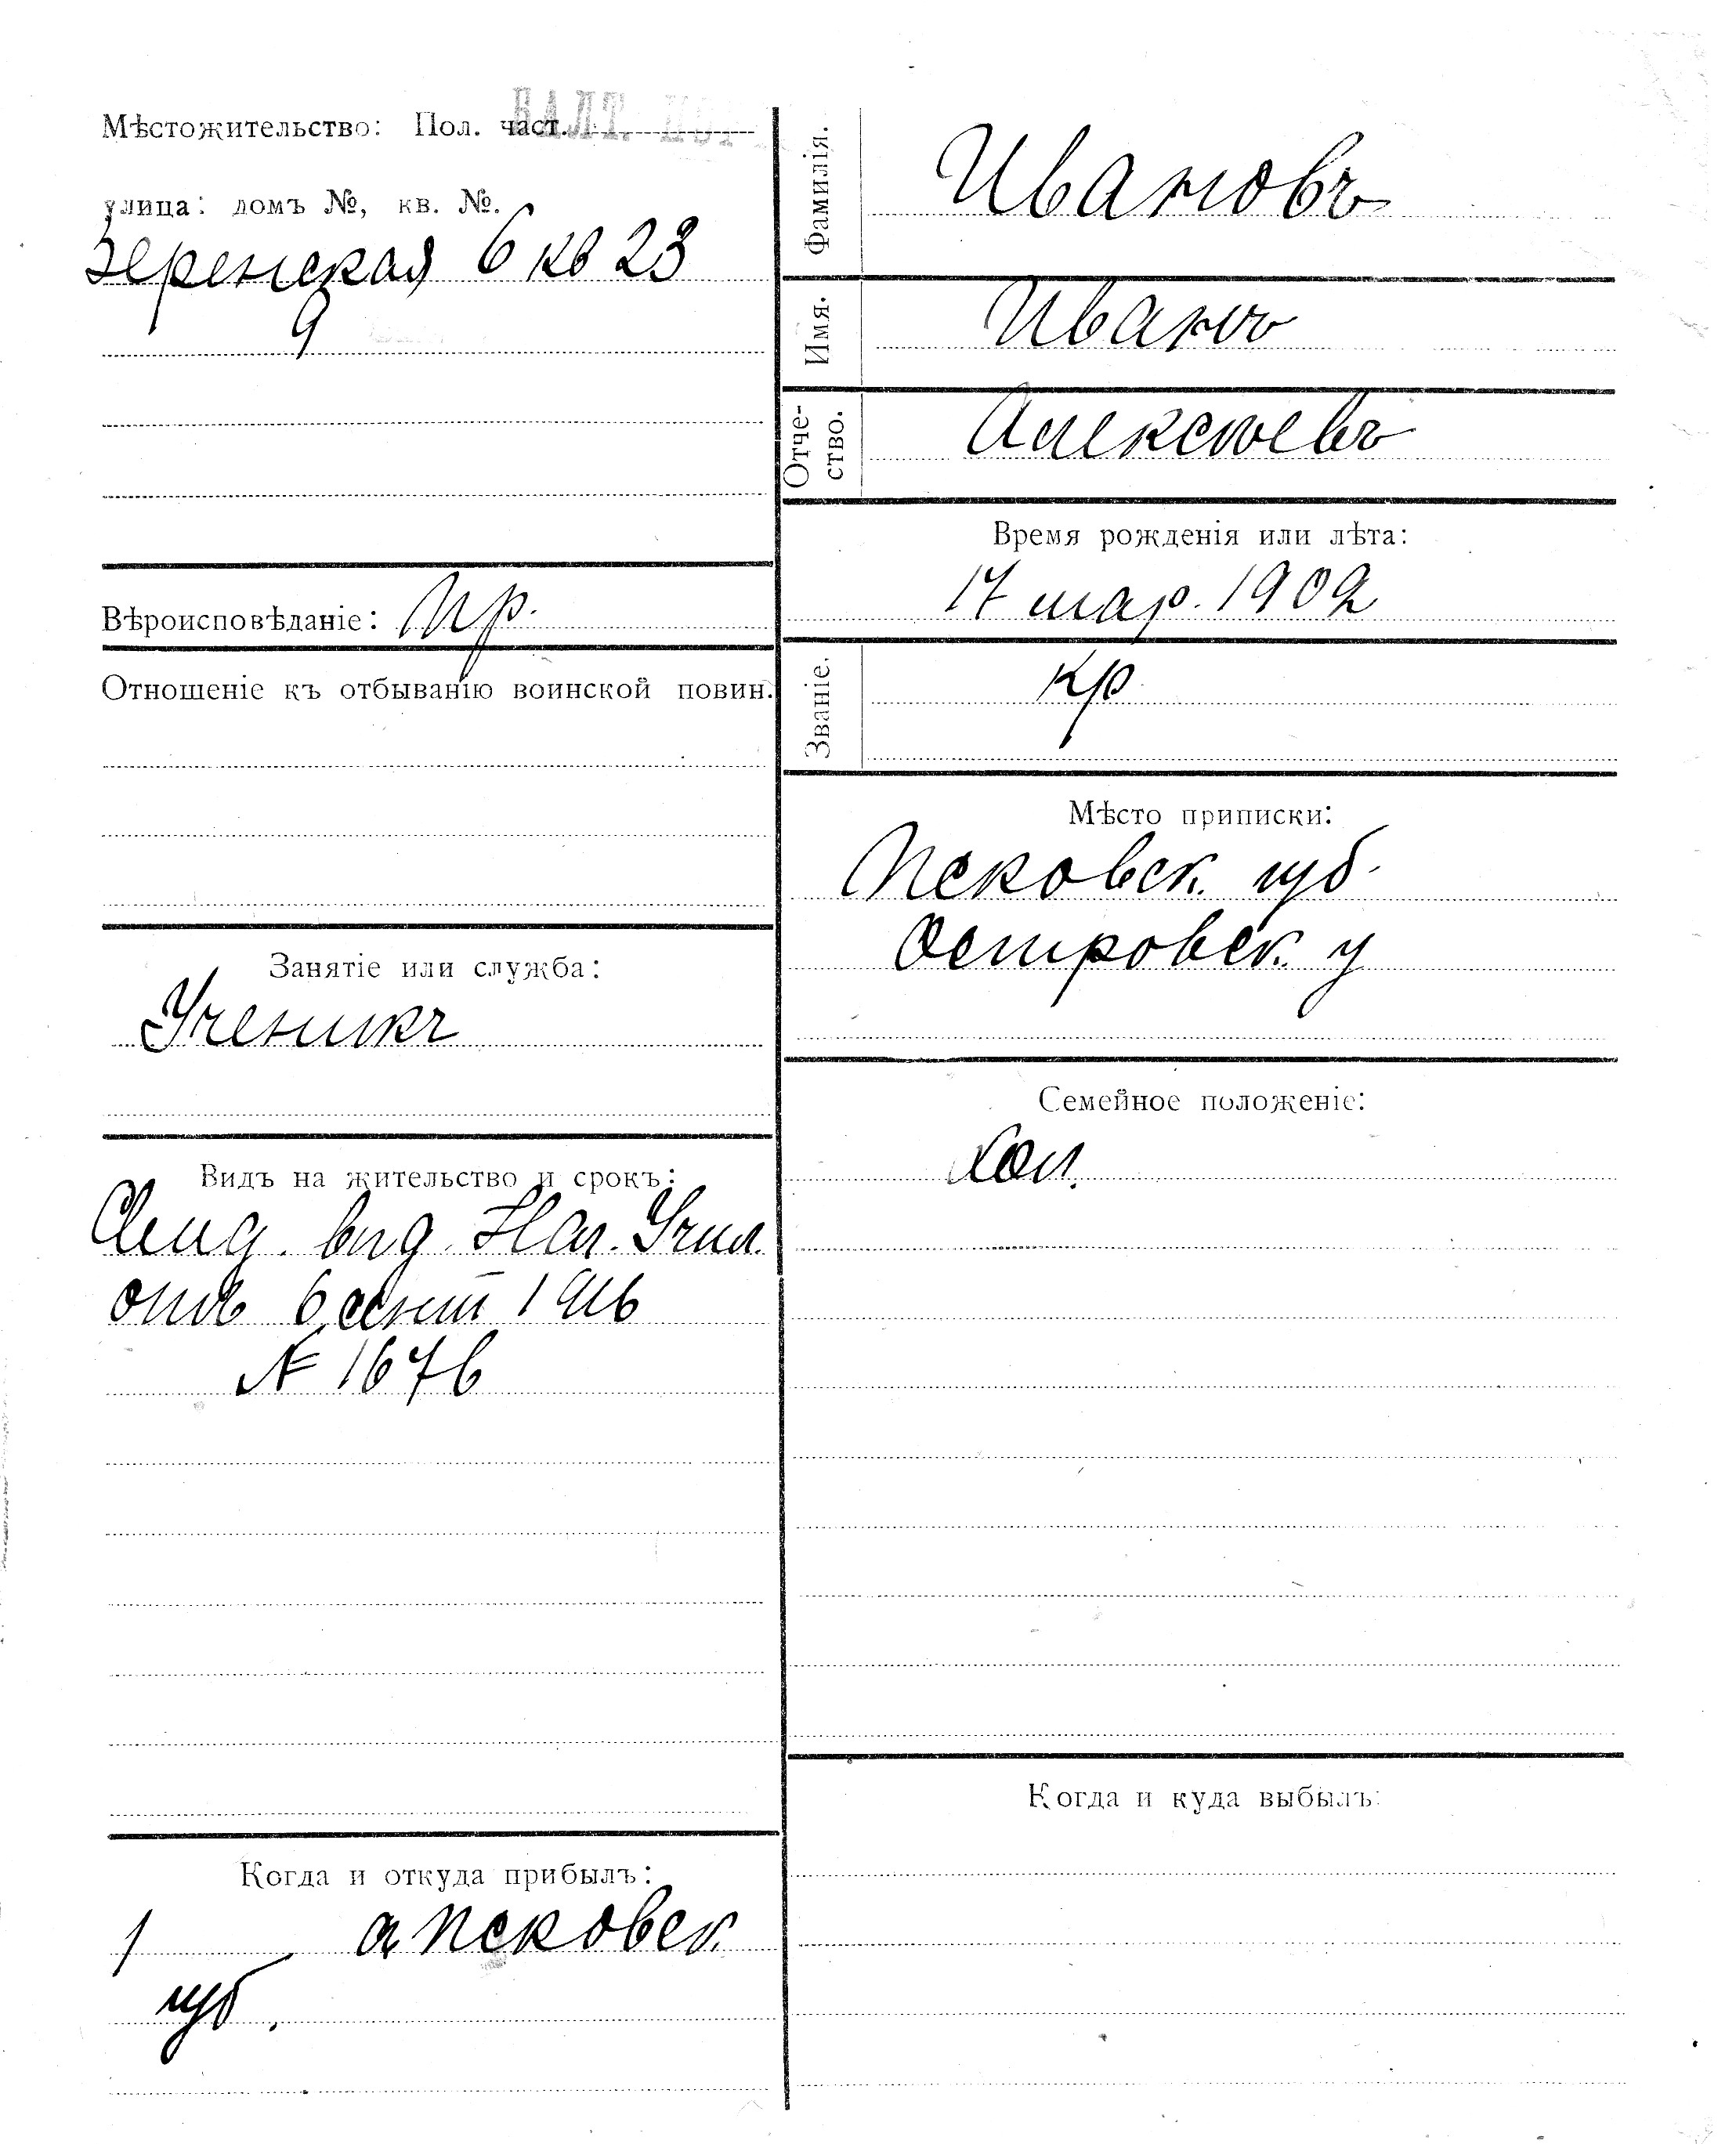 Мѣстожительство: Пол. част.
БАЛТ. ПОР
улица: домъ №, кв. №.
6 кв 23
9
Вѣроисповѣданіе: Пр.
Отношеніе къ отбыванію воинской повин.
Занятіе или служба:
Ученикъ
Видъ на жительство и срокъ:
выд. Нач. Учил.
отъ 6 сент 1916
№ 1676
Когда и откуда прибылъ:
1 Псковск.
губ.
Фамилія.
Ивановъ
Имя.
Иванъ
Отче-
ство.
Алексѣевъ
Время рожденія или лѣта:
17 мар. 1902
Званіе.
кр
Мѣсто приписки:
Псковск. губ.
Островск. у
Семейное положеніе:
Хол.
Когда и куда выбылъ: